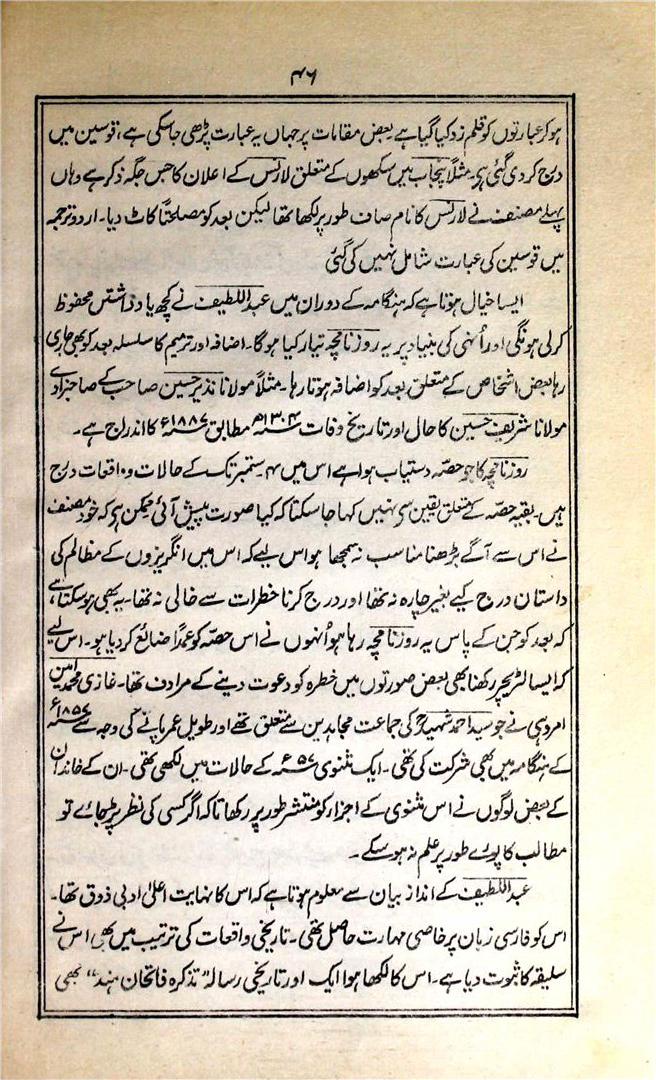 ۴۶
ہوکر عبارتوں کو قلم زد کیا گیا ہے بعض مقامات پر جہاں یہ عبارت پڑھی جاسکی ہے، قوسین میں
درج کردی گئی ہے۔ مثلاً پنجاب میں سکھوں کے متعلق لارنس کے اعلان کا جس جگہ ذکر ہے وہاں
پہلے مصنف نے لارنس کا نام صاف طور پر لکھا تھا لیکن بعد کو مصلحتاً کاٹ دیا۔ اردو ترجمہ
میں قوسین کی عبارت شامل نہیں کی گئی
ایسا خیال ہوتا ہے کہ ہنگامہ کے دوران میں عبداللطیف نے کچھ یادداشتیں محفوظ
کرلی ہونگی اور اُنہی کی بنیاد پر یہ روزنامچہ تیار کیا ہوگا۔ اضافہ اور ترمیم کا سلسلہ بعد کو بھی جاری
رہا بعض اشخاص کے متعلق بعد کو اضافہ ہوتا رہا۔ مثلاً مولانا نذیر حسین صاحب کے صاحبزادے
مولانا شریف حسین کا حال اور تاریخ وفات ۱۳۰۴ھ مطابق ۱۸۸۷ء کا اندراج ہے۔
روزنامچہ کا جو حصّہ دستیاب ہوا ہے اس میں ۴۔ ستمبر تک کے حالات و واقعات درج
ہیں۔ بقیہ حصّہ کے متعلق یقین سے نہیں کہا جاسکتا کہ کیا صورت پیش آئی ممکن ہے کہ خود مصنف
نے اس سے آگے بڑھنا مناسب نہ سمجھا ہو اس لیے کہ اس میں انگریزوں کے مظالم کی
داستان درج کیے بغیر چارہ نہ تھا اور درج کرنا خطرات سے خالی نہ تھا۔ یہ بھی ہوسکتا ہے
کہ بعد کو جن کے پاس یہ روزنامچہ رہا ہو اُنہوں نے اس حصّہ کو عمداً ضائع کردیا ہو۔ اس لیے
کہ ایسا لٹریچر رکھنا بھی بعض صورتوں میں خطرہ کو دعوت دینے کے مرادف تھا۔ غازی محمد امین
امروہی نے جو سید احمد شہیدؒ کی جماعت مجاہدین سے متعلق تھے اور طویل عمر پانے کی وجہ سے ۱۸۵۷ء
کے ہنگامہ میں بھی شرکت کی تھی۔ ایک مثنوی ۵۷ء کے حالات میں لکھی تھی۔ ان کے خاندان
کے بعض لوگوں نے اس مثنوی کے اجزار کو منتشر طور پر رکھا تاکہ اگر کسی کی نظر پڑجائے تو
مطالب کا پورے طور پر علم نہ ہوسکے۔
عبداللطیف کے انداز بیان سے معلوم ہوتا ہے کہ اس کا نہایت اعلیٰ ادبی ذوق تھا۔
اس کو فارسی زبان پر خاصی مہارت حاصل تھی۔ تاریخی واقعات کی ترتیب میں بھی اس نے
سلیقہ کا ثبوت دیا ہے۔ اس کا لکھا ہوا ایک اور تاریخی رسالہ "تذکرہ فاتحان ہند" بھی